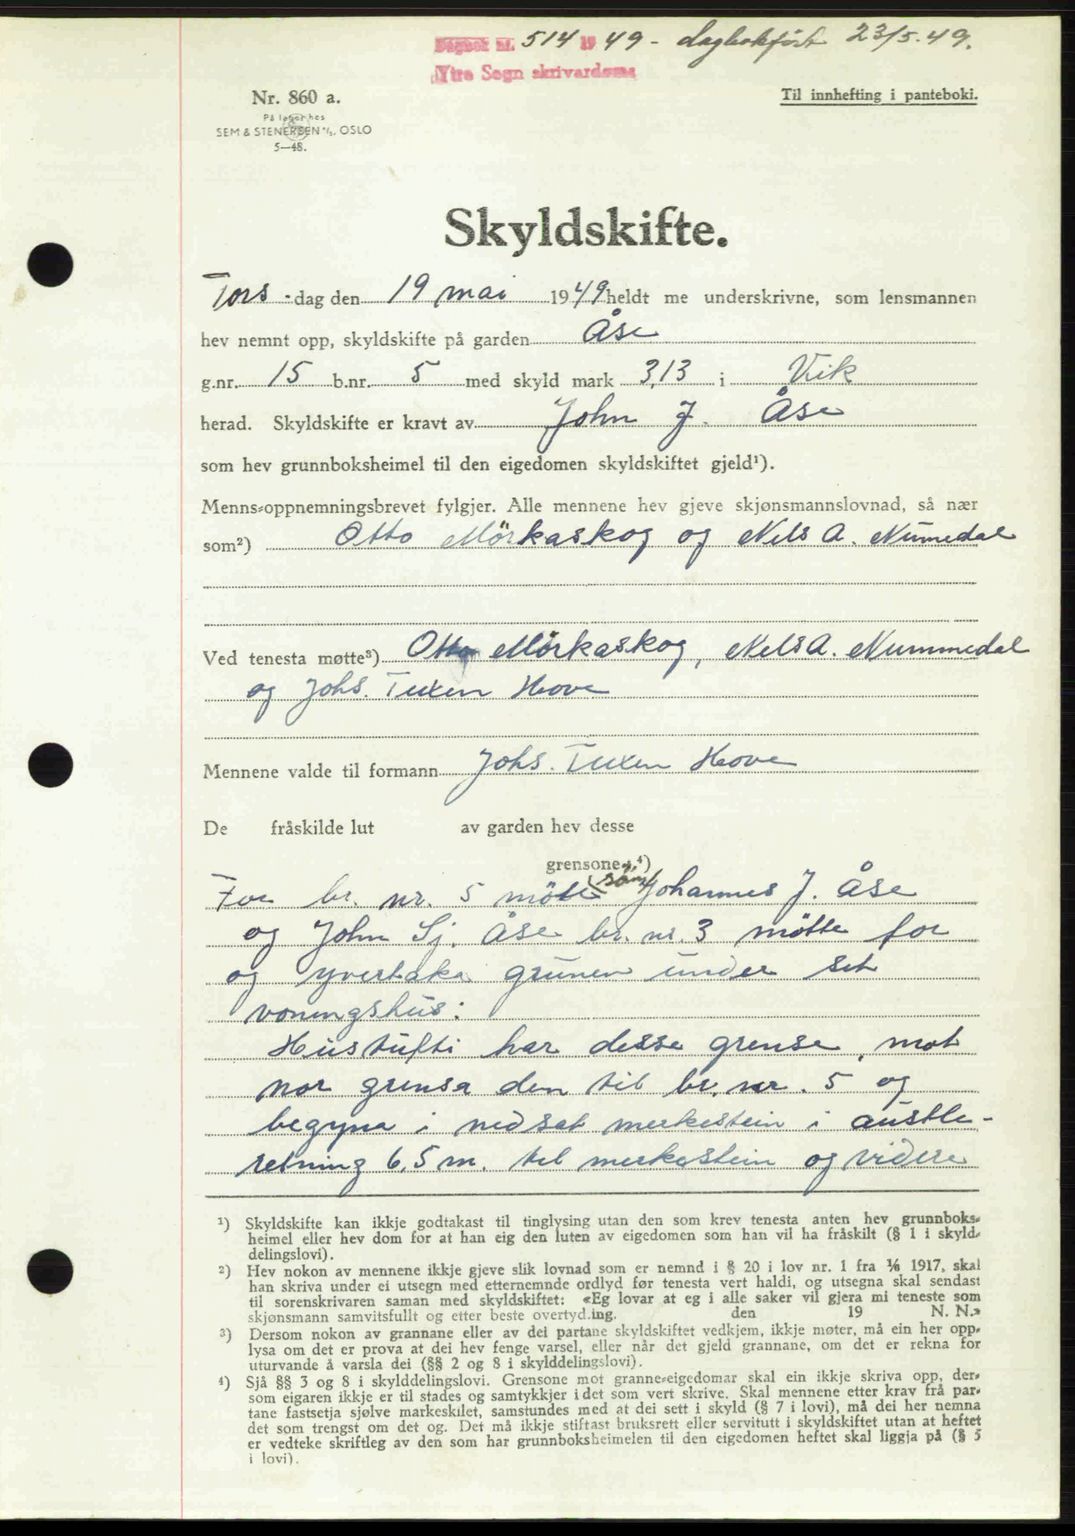 Dagbok nr. 514 19 49 - dagbokført 23/5.49.
Ytre Sogn skrivardøme
Nr. 860 a.
Til innhefting i panteboki.
På lager hos
SEM & STENERSEN A/S, OSLO
5—48.
Skyldskifte.
Tors-dag den 19 mai 1949 heldt me underskrivne, som lensmannen
hev nemnt opp, skyldskifte på garden Åse
g.nr. 15 b.nr. 5 med skyld mark 3,13 i Vik
herad. Skyldskifte er kravt av John J. Åse
som hev grunnboksheimel til den eigedomen skyldskiftet gjeld¹).
Menns-oppnemningsbrevet fylgjer. Alle mennene hev gjeve skjønsmannslovnad, så nær
som²) Otto Mörkaskog og Nels A. Nümedal
Ved tenesta møtte³) Otto Mörkaskog, Nels A. Nummedal
og Johs. Tuxen Hove
Mennene valde til formann Johs. Tuxen Hove
De fråskilde lut av garden hev desse
grensone:⁴)
For br. nr. 5 mötte (son) Johannes J. Åse
og John Sj. Åse br. nr. 3 mötte for
og yvertaka grunen under sit
voningshus:
Hustufti har desse grense, mot
nor grensa den til br. nr. 5 og
begyna i nedsat merkestein i austle-
retning 6,5 m. til merkestein og videre
¹) Skyldskifte kan ikkje godtakast til tinglysing utan den som krev tenesta anten hev grunnboks-
heimel eller hev dom for at han eig den luten av eigedomen som han vil ha fråskilt (§ 1 i skyld-
delingslovi).
²) Hev nokon av mennene ikkje gjeve slik lovnad som er nemnd i § 20 i lov nr. 1 fra 1/6 1917, skal
han skriva under ei utsegn med etternemnde ordlyd før tenesta vert haldi, og utsegna skal sendast
til sorenskrivaren saman med skyldskiftet: «Eg lovar at eg i alle saker vil gjera mi teneste som
skjønsmann samvitsfullt og etter beste overtyding. den 19 N. N.»
³) Dersom nokon av grannane eller av dei partane skyldskiftet vedkjem, ikkje møter, må ein her opp-
lysa om det er prova at dei hev fenge varsel, eller når det gjeld grannane, om det er rekna for
uturvande å varsla dei (§§ 2 og 8 i skylddelingslovi).
⁴) Sjå §§ 3 og 8 i skylddelingslovi. Grensone mot granne-eigedomar skal ein ikkje skriva opp, der-
som eigaren ikkje er til stades og samtykkjer i det som vert skrive. Skal mennene etter krav frå par-
tane fastsetja sjølve markeskilet, samstundes med at dei sett i skyld (§ 7 i lovi), må dei her nemna
det som trengst om det og. Det må ikkje stiftast bruksrett eller servitutt i skyldskiftet utan at heftet
er vedteke skriftleg av den som har grunnboksheimelen til den eigedomen heftet skal liggja på (§ 5
i lovi).